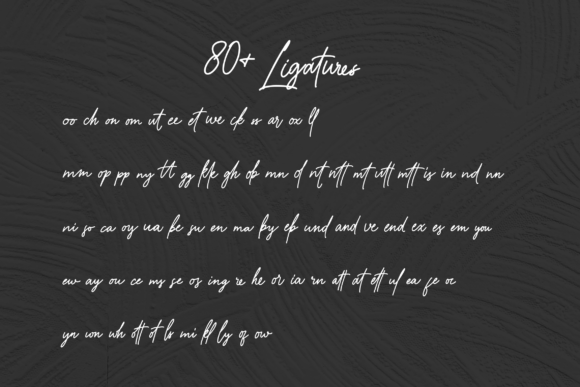 80+ Ligatures
oo ch on om ut ee et we ck ss ar ox ll
mm op pp ny tt gg kk gh ob mn d nt ntt mt utt mtt is in nd nn
ni so ca oy ua be su en ma by eb und and ve end ex es em you
ew ay ou ce ms se os ing re he or ia rn att at ett ul ea fe oc
yn wn wh ott ot ls mi kl ly of ow